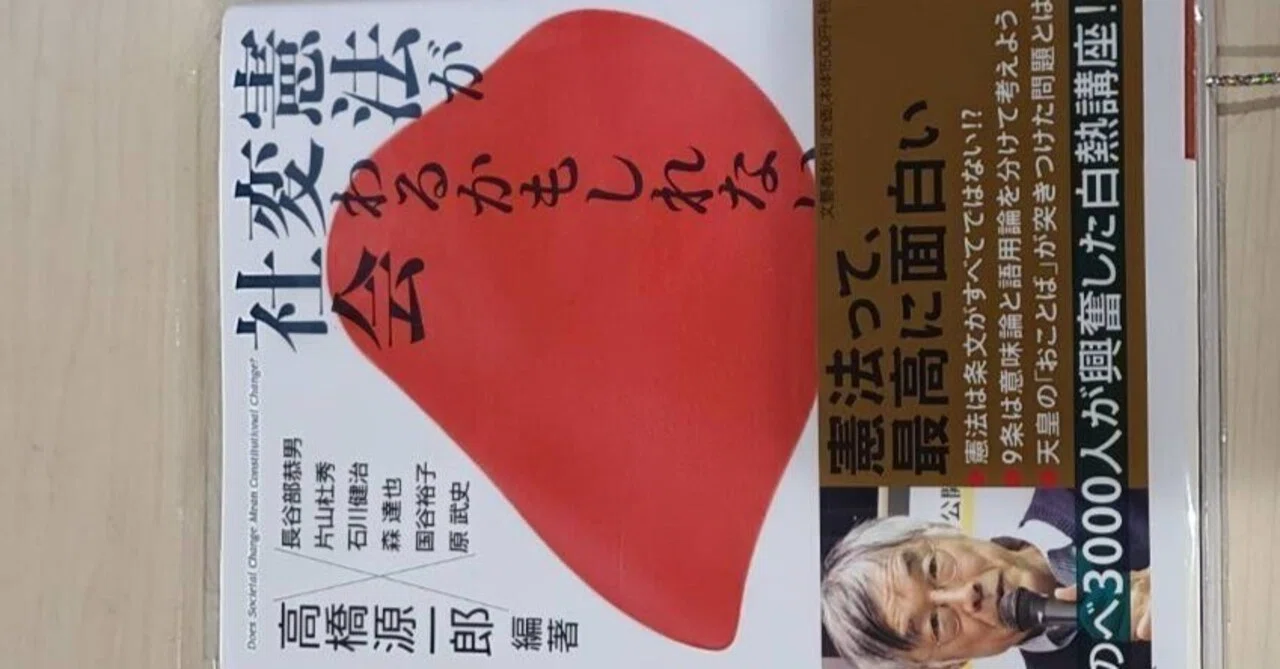 憲法が
変わるかもしれない
社会
Does Societal Change Mean Constitutional Change?
高橋源一郎
編著
長谷部恭男
片山杜秀
石川健治
森 達也
国谷裕子
原 武史
文藝春秋刊 定価:本体1500円+税
憲法って、
最高に面白い
憲法は条文がすべてではない!?
9条は意味論と語用論を分けて考えよう
天皇の「おことば」が突きつけた問題とは
公開
のべ3000人が興奮した白熱講座!